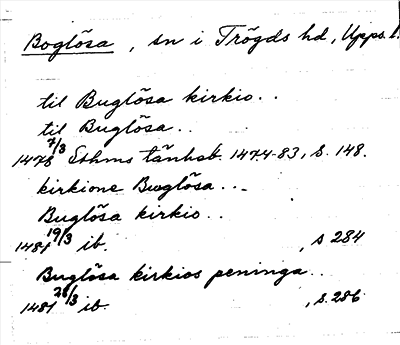 Boglösa, sn i Trögds hd, Upps. l.
til Buglösa kirkio..
til Buglösa..
1478 7/3 Sthms tänkeb. 1474-83, s. 148.
kirkione Bwglösa...
Buglösa kirkio..
1481 19/3 ib. , s 284
Buglösa kirkios peninga..
1481 26/3 ib. , s. 286